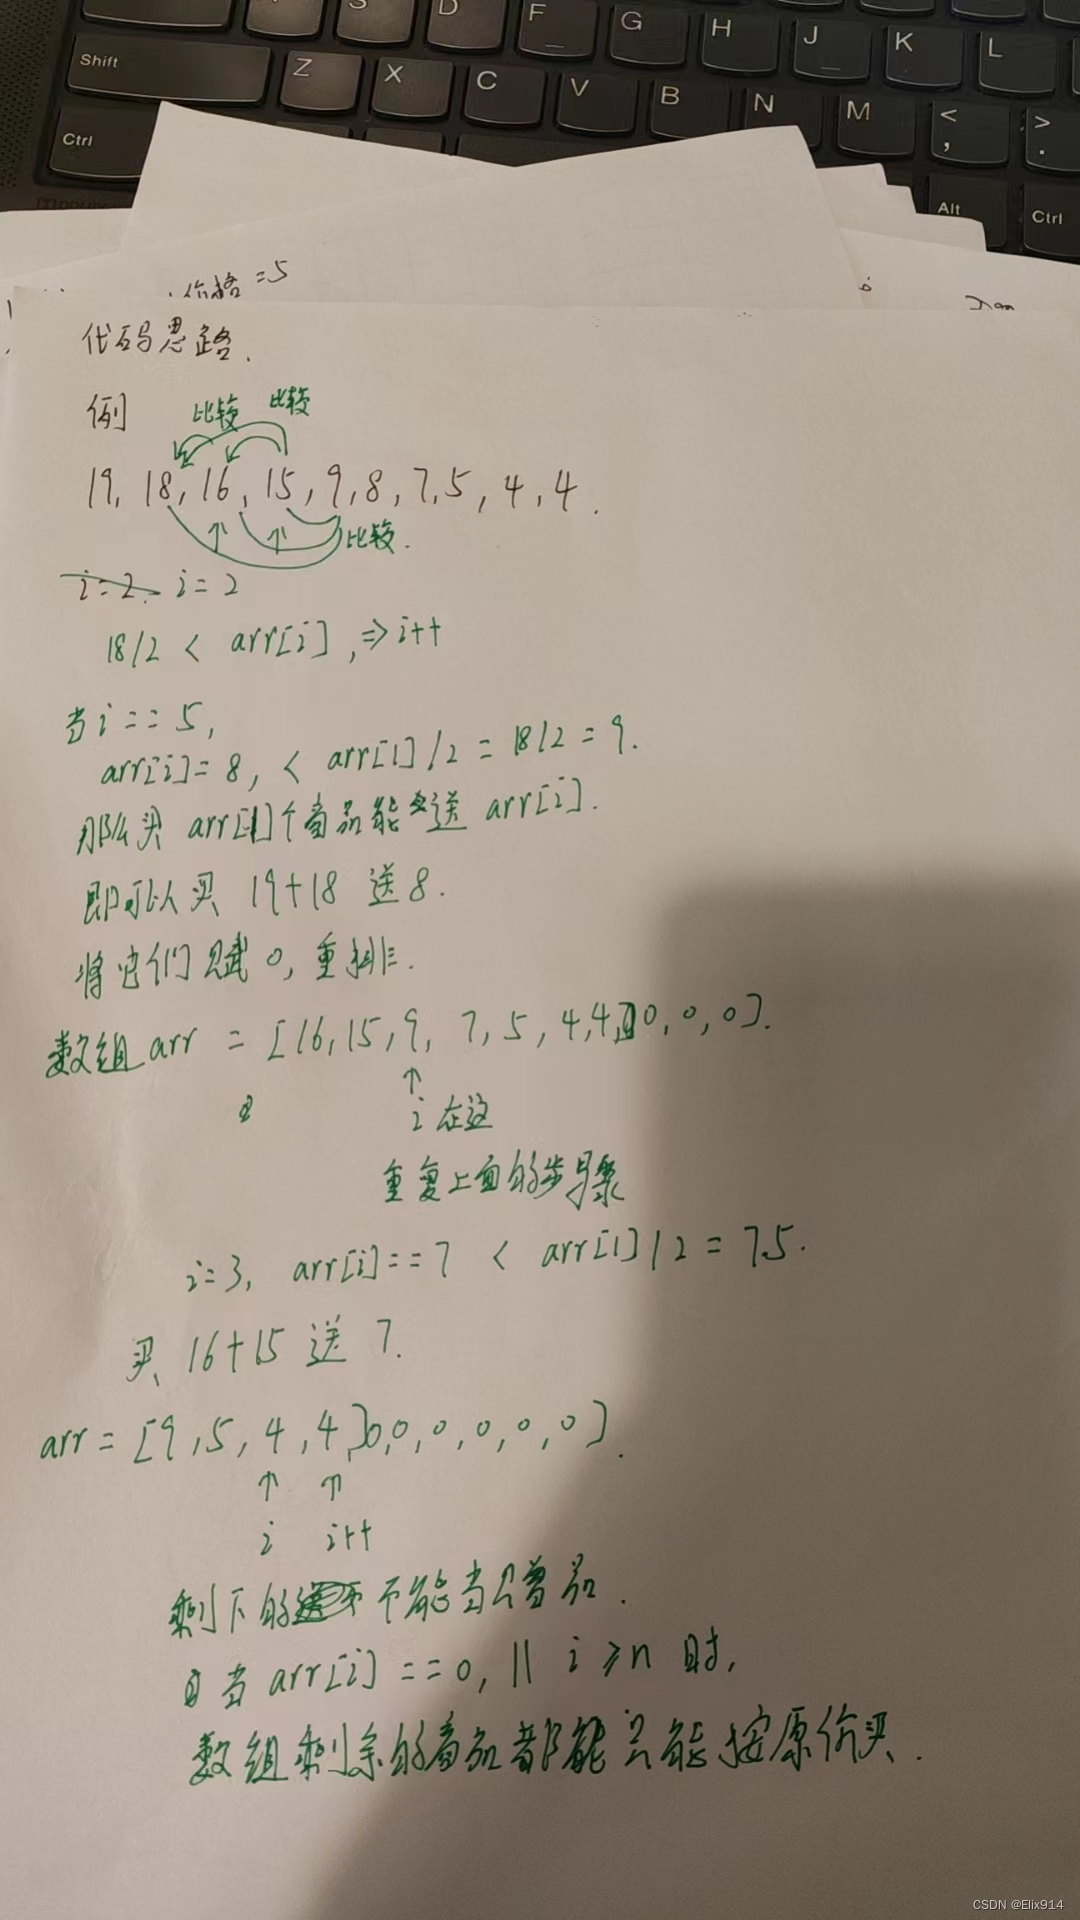 S D F G H J K L
Shift Z X C V B N M < ,
> .
Ctrl
Alt Ctrl
价格 =5
代码思路.
例 比较 比较
19, 18, 16, 15, 9, 8, 7, 5, 4, 4.
比较.
i=2. i=2
18/2 < arr[i], ⇒ i++
当 i == 5,
arr[i]=8, < arr[1]/2 = 18/2 = 9.
那么买 arr[1]个商品能送 arr[i].
即可以买 19+18 送 8.
将它们赋 0, 重排.
数组 arr = [16, 15, 9, 7, 5, 4, 4, 0, 0, 0].
↑
i 在这
重复上面的步骤
i=3, arr[i]==7 < arr[1]/2 = 7.5.
买 16+15 送 7.
arr = [9, 5, 4, 4, 0, 0, 0, 0, 0, 0].
↑ ↑
i i++
剩下的不能当赠品.
当 arr[i] == 0, || i ≥ n 时,
数组剩余的商品都只能按原价买.
CSDN @Elix914